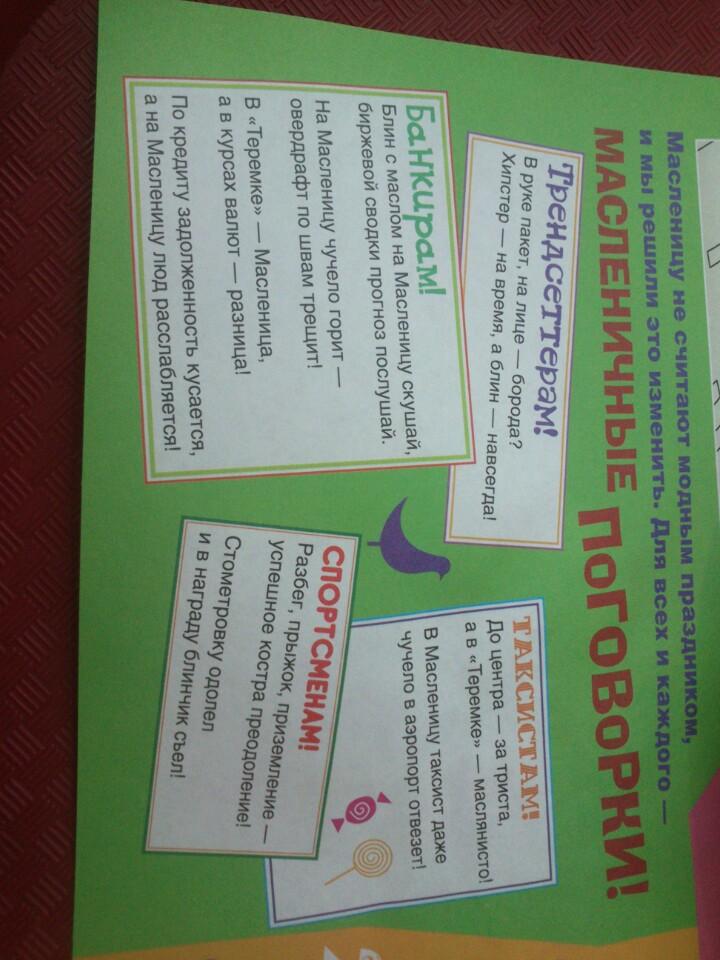 Масленицу не считают модным праздником,
и мы решили это изменить. Для всех и каждого —
МАСЛЕНИЧНЫЕ ПОГОВОРКИ!
Трендсеттерам!
В руке пакет, на лице — борода?
Хипстер — на время, а блин — навсегда!
Банкирам!
Блин с маслом на Масленицу скушай,
биржевой сводки прогноз послушай.
На Масленицу чучело горит —
овердрафт по швам трещит!
В «Теремке» — Масленица,
а в курсах валют — разница!
По кредиту задолженность кусается,
а на Масленицу люд расслабляется!
ТАКСИСТАМ!
До центра — за триста,
а в «Теремке» — маслянисто!
В Масленицу таксист даже
чучело в аэропорт отвезет!
СПОРТСМЕНАМ!
Разбег, прыжок, приземление —
успешное костра преодоление!
Стометровку одолел
и в награду блинчик съел!